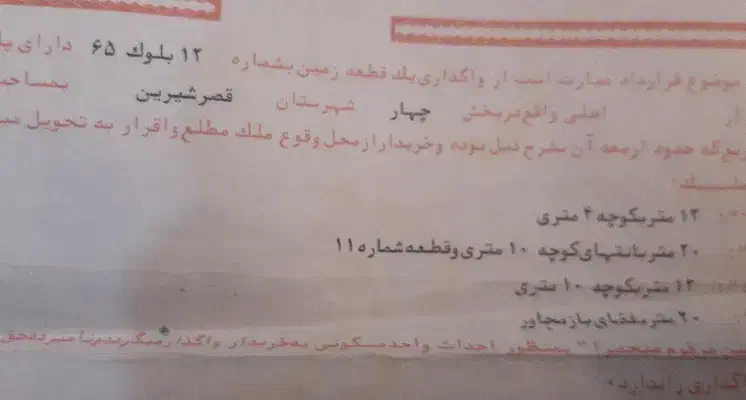 موضوع قرارداد عبارت است از واگذاری یک قطعه زمین بشماره ۱۲ بلوک ۶۵ دارای
از اصلی واقع در بخش چهار شهرستان قصرشیرین بمساحت
که حدود اربعه آن بشرح ذیل بوده و خریدار از محل وقوع ملک مطلع و اقرار به تحویل
۱۲ متر بکوچه ۴ متری
۲۰ متر بانتهای کوچه ۱۰ متری و قطعه شماره ۱۱
۱۲ متر بکوچه ۱۰ متری
۲۰ متر بفضای باز مجاور
مرقوم منحصرا" بمنظور احداث واحد مسکونی به خریدار واگذار میگردد نامبرده حق
واگذاری را ندارد.